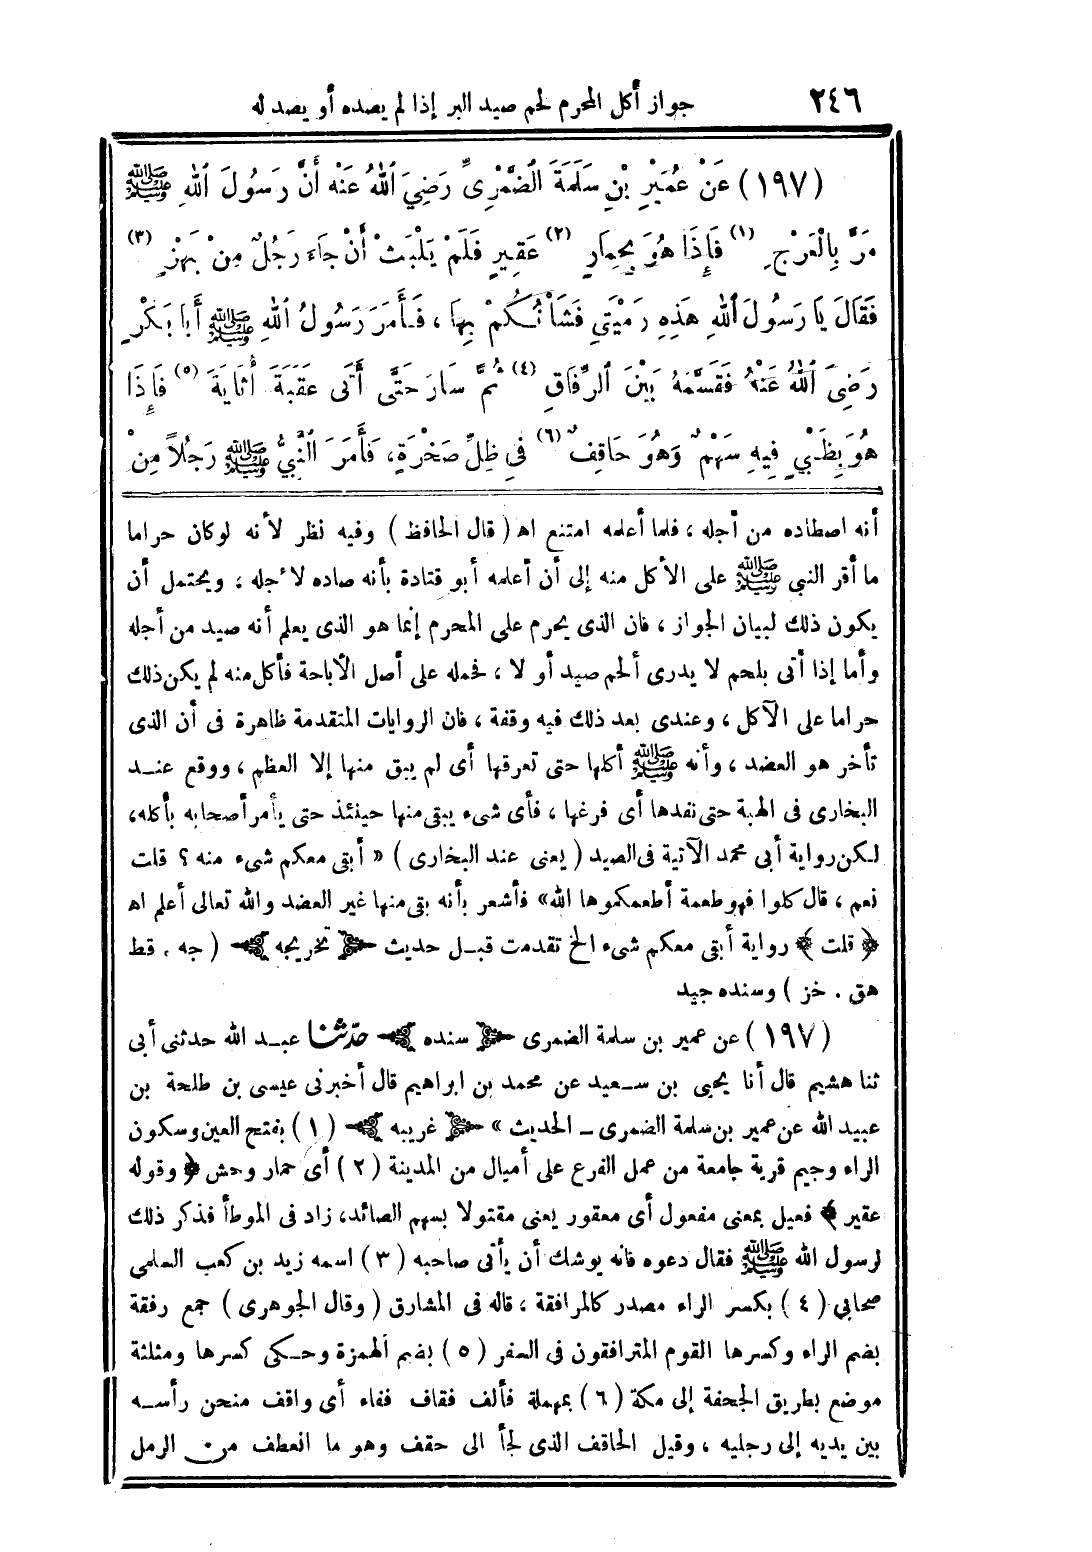 ٢٤٦ جواز أكل المحرم لحم صيد البر إذا لم يصده أو يصد له
(١٩٧) عَنْ عُمَيْرِ بْنِ سَلَمَةَ الضَّمْرِيِّ رَضِيَ اللهُ عَنْهُ أَنَّ رَسُولَ اللهِ ﷺ
مَرَّ بِالْعَرْجِ (١) فَإِذَا هُوَ بِحِمَارٍ (٢) عَقِيرٍ فَلَمْ يَلْبَثْ أَنْ جَاءَ رَجُلٌ مِنْ بَهْزٍ (٣)
فَقَالَ يَا رَسُولَ اللهِ هَذِهِ رَمْيَتِي فَشَأْنُكُمْ بِهَا ، فَأَمَرَ رَسُولُ اللهِ ﷺ أَبَا بَكْرٍ
رَضِيَ اللهُ عَنْهُ فَقَسَّمَهُ بَيْنَ الرِّفَاقِ (٤) ثُمَّ سَارَ حَتَّى أَتَى عَقَبَةَ أُثَايَةَ (٥) فَإِذَا
هُوَ بِظَبْيٍ فِيهِ سَهْمٌ وَهُوَ حَاقِفٌ (٦) فِي ظِلِّ صَخْرَةٍ، فَأَمَرَ النَّبِيُّ ﷺ رَجُلًا مِنْ
أنه اصطاده من أجله ، فلما أعلمه امتنع اه ( قال الحافظ ) وفيه نظر لأنه لو كان حراما
ما أقر النبي ﷺ على الأكل منه إلى أن أعلمه أبو قتادة بأنه صاده لأجله ، ويحتمل أن
يكون ذلك لبيان الجواز ، فان الذى يحرم على المحرم إنما هو الذى يعلم أنه صيد من أجله
وأما إذا أتى بلحم لا يدرى ألحم صيد أو لا ، فحمله على أصل الأباحة فأكل منه لم يكن ذلك
حراما على الآكل ، وعندى بعد ذلك فيه وقفة ، فان الروايات المتقدمة ظاهرة فى أن الذى
تأخر هو العضد ، وأنه ﷺ أكلها حتى تعرقها أى لم يبق منها إلا العظم ، ووقع عنـد
البخارى فى الهبة حتى نفدها أى فرغها ، فأى شىء يبقى منها حينئذ حتى يأمر أصحابه بأكله،
لـكن رواية أبى محمد الآتية فى الصيد ( يعنى عند البخارى ) « أبقى معكم شىء منه ؟ قلت
نعم ، قال كلوا فهو طعمة أطعمكموها الله» فأشعر بأنه بقى منها غير العضد والله تعالى أعلم اه
﴿ قلت ﴾ رواية أبقى معكم شىء الخ تقدمت قبـل حديث ﴿ تخريجه ﴾ ( جه . قط
هق . خز ) وسنده جيد
(١٩٧) عن عمير بن سلمة الضمرى ﴿ سنده ﴾ حدّثنا عبـد الله حدثنى أبى
ثنا هشيم قال أنا يحيى بن سـعيد عن محمد بن ابراهيم قال أخبرنى عيسى بن طلحة بن
عبيد الله عن عمير بن سلمة الضمرى ــ الحديث » ﴿ غريبه ﴾ (١) بفتح العين وسكون
الراء وجيم قرية جامعة من عمل الفرع على أميال من المدينة (٢) أى حمار وحش ﴿ وقوله
عقير ﴾ فعيل بمعنى مفعول أى معقور يعنى مقتولا بسهم الصائد، زاد فى الموطأ فذكر ذلك
لرسول الله ﷺ فقال دعوه فانه يوشك أن يأتى صاحبه (٣) اسمه زيد بن كعب السلمى
صحابي (٤) بكسر الراء مصدر كالمرافقة ، قاله فى المشارق ( وقال الجوهرى ) جمع رفقة
بضم الراء وكسرها القوم المترافقون فى السفر (٥) بضم الهمزة وحـكى كسرها ومثلثة
موضع بطريق الجحفة إلى مكة (٦) بمهملة فألف فقاف ففاء أى واقف منحن رأسـه
بين يديه إلى رجليه ، وقيل الحاقف الذى لجأ الى حقف وهو ما انعطف من الرمل